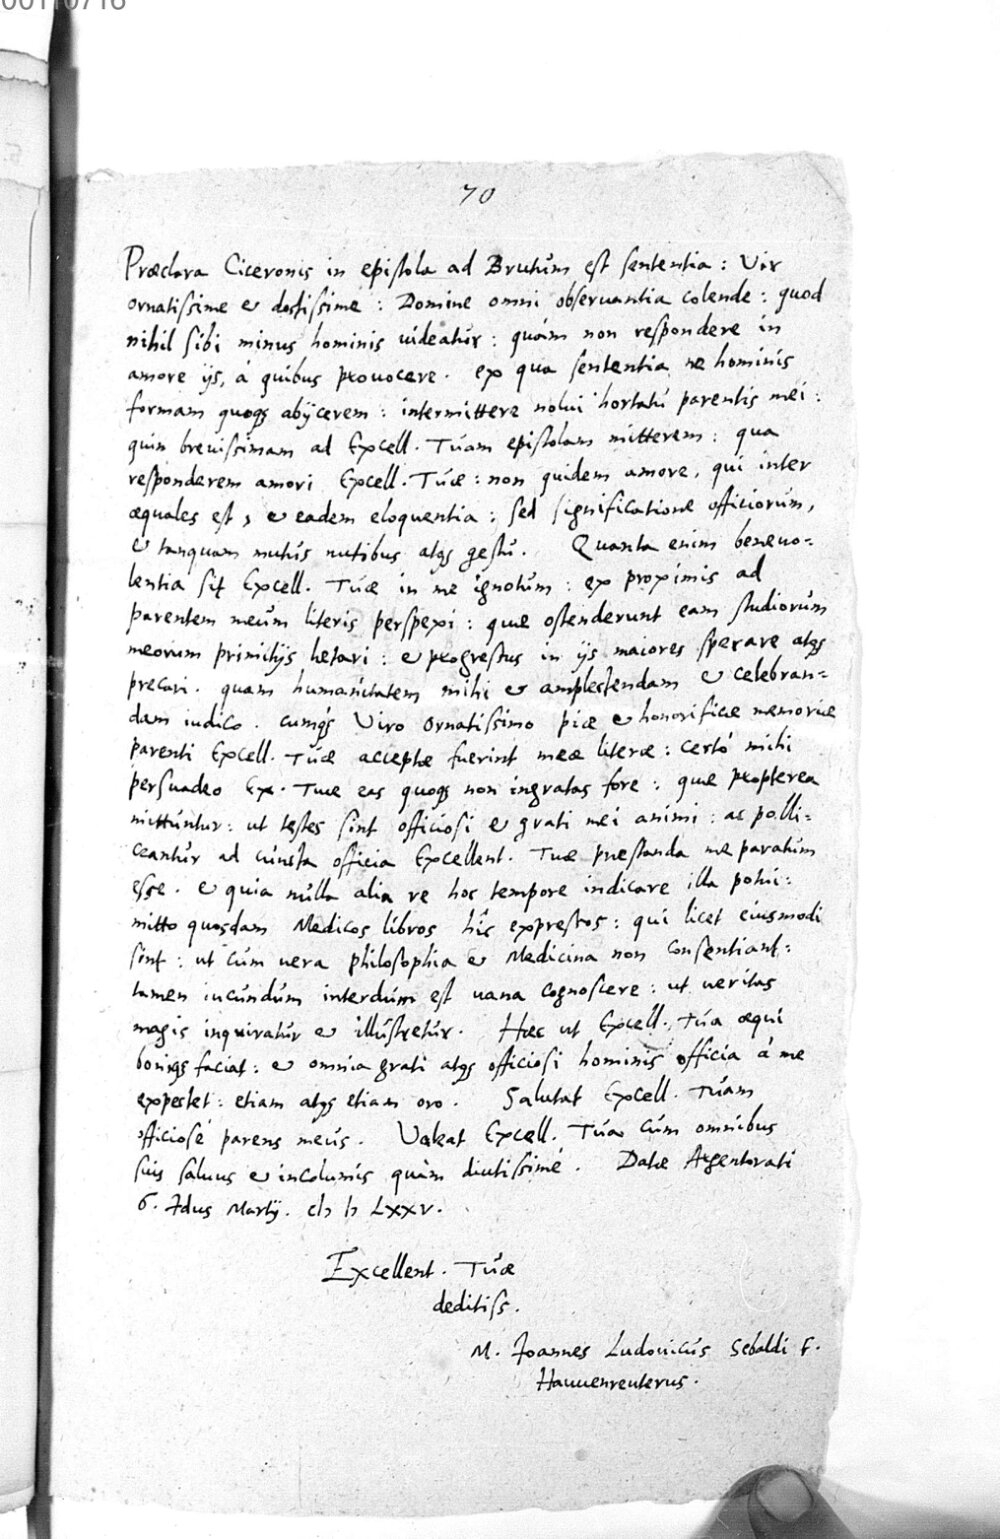 00110716
70
Præclara Ciceronis in epistola ad Brutum est sententia: Vir
ornatissime & doctissime: Domine omni obseruantia colende: quod
nihil sibi minus hominis uideatur: quàm non respondere in
amore ijs, á quibus prouocere. ex qua sententia, ne hominis
formam quoqꝫ abijcerem: intermittere nolui hortatu parentis mei:
quin breuissimam ad Excell. Tuam epistolam mitterem: qua
responderem amori Excell. Tuæ: non quidem amore, qui inter
æquales est, & eadem eloquentia: sed significatione officiorum,
& tanquam mutus nutibus atqꝫ gestu. Quanta enim beneuo=
lentia sit Excell. Tuæ in me ignotum: ex proximis ad
parentem meum literis perspexi: quæ ostenderunt eam studiorum
meorum primitijs lætari: & progressus in ijs maiores sperare atqꝫ
precari. quam humanitatem mihi & amplectendam & celebran=
dam iudico. cumqꝫ Viro ornatissimo piæ & honorificæ memoriæ
parenti Excell. Tuæ acceptæ fuerint meæ literæ: certó mihi
persuadeo Ex. Tuæ eas quoqꝫ non ingratas fore: quæ propterea
mittuntur: ut testes sint officiosi & grati mei animi: ac polli=
ceantur ad cuncta officia Excellent. Tuæ præstanda me paratum
esse. & quia nulla alia re hoc tempore indicare illa potui:
mitto quosdam Medicos libros hîc expressos: qui licet eiusmodi
sint: ut cum uera philosophia & Medicina non consentiant:
tamen iucundum interdum est uana cognoscere: ut ueritas
magis inquiratur & illustretur. Hæc ut Excell. Tua æqui
boniqꝫ faciat: & omnia grati atqꝫ officiosi hominis officia á me
expectet: etiam atqꝫ etiam oro. Salutat Excell. Tuam
officiosé parens meus. Valeat Excell. Tua cum omnibus
suis saluus & incolumis quàm diutissimé. Datæ Argentorati
6. Idus Martij. cIↄ Iↄ LXXV.
Excellent. Tuæ
deditiss.
M. Joannes Ludouicus Sebaldi F.
Hauuenreuterus.